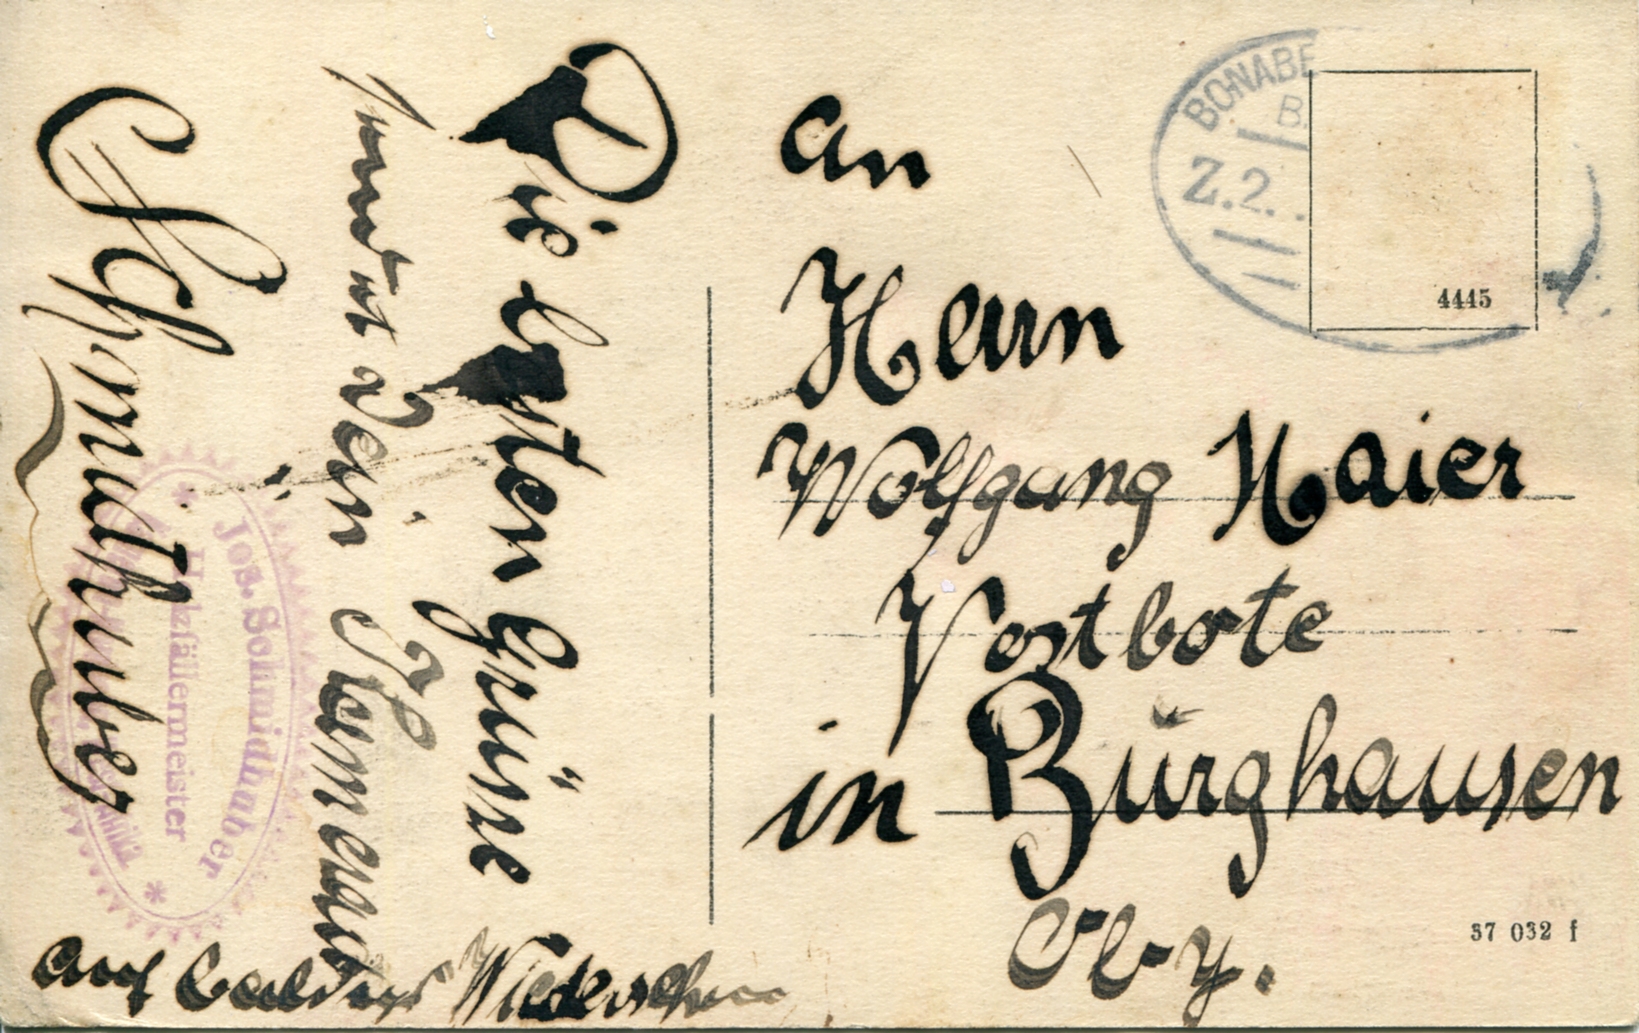 Die besten Grüsse
sendet Dein Kamerad
Schmidhuber
auf baldiges Wiedersehen
Jos. Schmidhuber
Holzfällermeister
An
Herrn
Wolfgang Maier
Postbote
in Burghausen
Oby.
BONABE
B.
Z.2.
4445
37 032 f